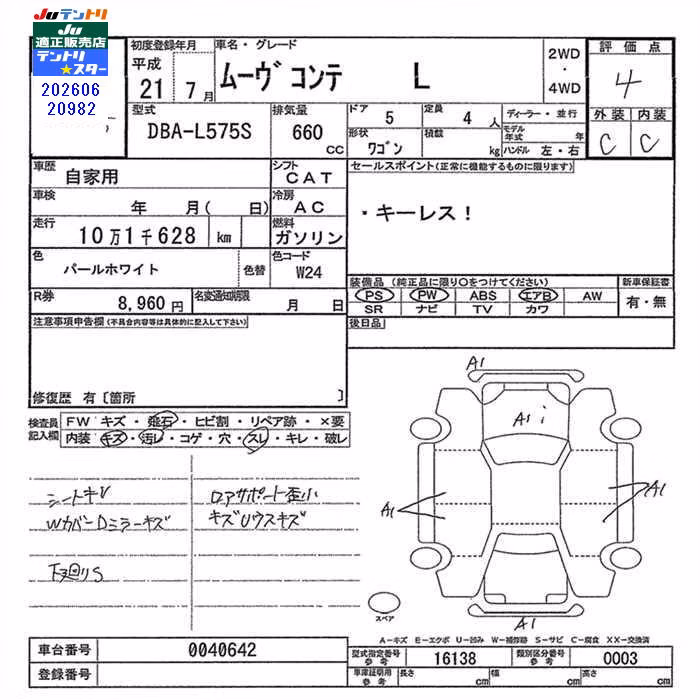 JUテントリ
JU
適正販売店
テントリ
★スター
202606
20982
初度登録年月
平成
21 7月
車名・グレード
ムーヴ コンテ L
2WD
・
4WD
評価点
4
外装 内装
C C
型式
DBA-L575S
排気量
660
CC
ドア
5
定員
4人
形状
ワゴン
積載
kg
ディーラー・並行
モデル年式 年
ハンドル 左・右
車歴
自家用
シフト
CAT
車検
年 月( 日)
冷房
AC
走行
10万1千628 km
燃料
ガソリン
色
パールホワイト
色替
色コード
W24
R券
8,960円
名変通知期限
月 日
セールスポイント(正常に機能するものに限ります)
・キーレス!
装備品(純正品に限り○をつけてください)
PS PW ABS エアB AW
SR ナビ TV カワ
新車保証書
有・無
後日品
注意事項申告欄(不具合内容等は具体的に記入して下さい)
修復歴 有〔箇所 〕
検査員
記入欄
FW キズ・飛石・ヒビ割・リペア跡・×要
内装・キズ・汚レ・コゲ・穴・スレ・キレ・破レ
シートキレ
WカバーDミラーキズ
下廻りS
ロアサポート歪小
キズUウスキズ
A1
A1 i
A1
A1
A1
スペア
A-キズ E-エクボ U-凹み W-補修跡 S-サビ C-腐食 XX-交換済
車台番号
0040642
登録番号
型式指定番号
参考
16138
類別区分番号
参考
0003
車庫証明用
参考
長さ cm
幅 cm
高さ cm